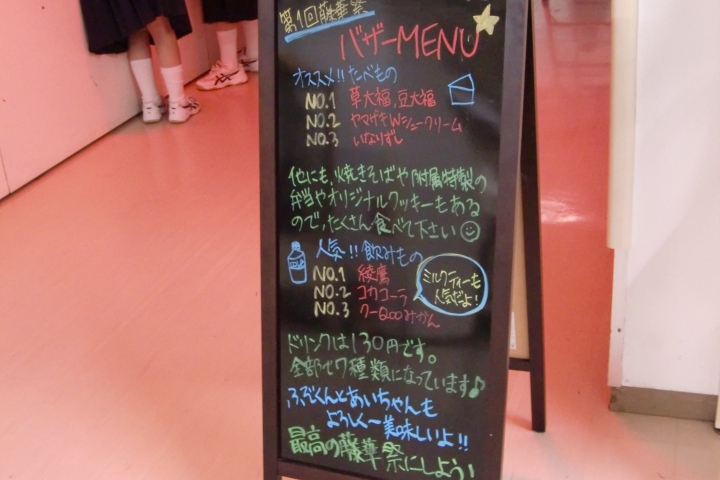 第1回散華祭
バザーMENU
オススメ!!たべもの
NO.1 草大福,豆大福
NO.2 ヤマザキWシュークリーム
NO.3 いなりずし
他にも,焼きそばや附属特製の
弁当やオリジナルクッキーもある
ので,たくさん食べて下さい☺
人気!!飲みもの
NO.1 綾鷹
NO.2 コカコーラ
NO.3 クーQooみかん
ミルクティーも
人気だよ!
ドリンクは130円です。
全部で7種類になっています♪
ふぞくんとあいちゃんも
よろしくー美味しいよ!!
最高の藤華祭にしよう!